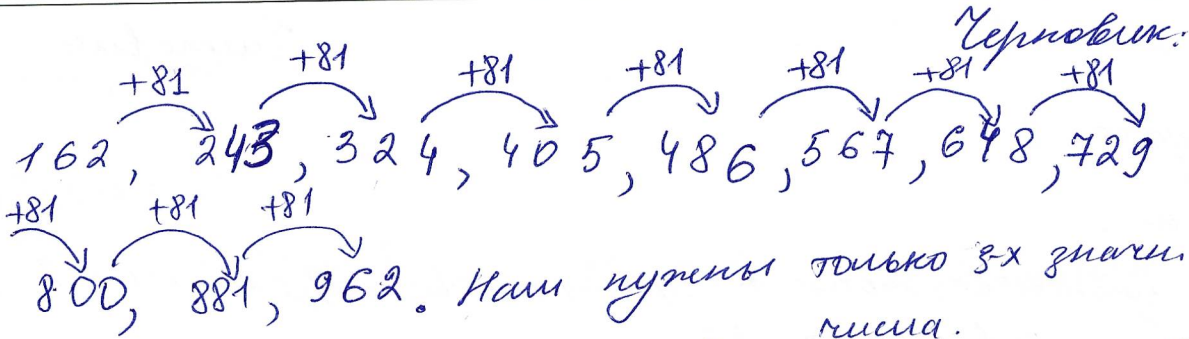 Черновик:
+81 +81 +81 +81 +81 +81 +81
162, 243, 324, 405, 486, 567, 648, 729
+81 +81 +81
800, 881, 962. Нам нужены только 3-х значн.
числа.